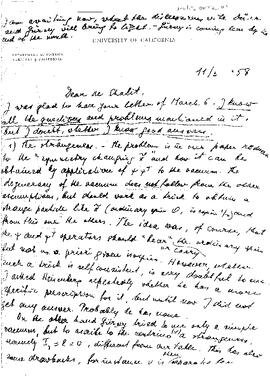 I am awaiting now, what the discussions with Dürr
and Gürsey will bring to light. Gürsey is coming here by the
end of the week.
UNIVERSITY OF CALIFORNIA
DEPARTMENT OF PHYSICS
11/3 58
Dear
I was glad to have your letter of March 6. I know
all the questions and problems mentioned in it.
but I doubt, whether I know good answers.
1) the strangeness. - the problem is in our paper reduced
to the "symmetry changing" and how it can be
obtained by application of to the vacuum. the
degeneracy of the vacuum does not follow from the other
assumptions but should work as a trick to obtain a
strange particle like (ordinary spin 0, isospin 1/2) and
from this one the others. The idea was, of course, that
the and operators should "bear" the ordinary spin
but not a priori isospin. However, whether
such a trick is selfconsistent, is very doubtful to me.
I asked Heisenberg repeatedly whether he has a more
specific prescription for it, but until now I did not
get any answer. Probably he has none.
On the other hand Gürsey tried to use only a simple
vacuum, but to the strangeness,
namely different from our Table. This has also
some drawbacks, for instance for